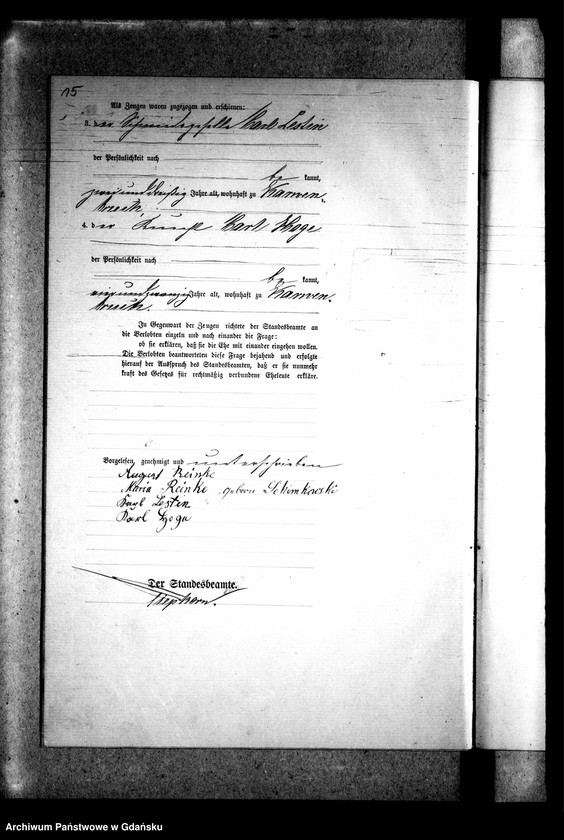 15
Als Zeugen waren zugezogen und erschienen:
3. der Schmiedegeselle Carl Lestin
der Persönlichkeit nach
be kannt,
zweiunddreißig Jahre alt, wohnhaft zu Kamven,
4. der Carl Hoge
der Persönlichkeit nach
be kannt,
vierundzwanzig Jahre alt, wohnhaft zu Kamven,
In Gegenwart der Zeugen richtete der Standesbeamte an
die Verlobten einzeln und nach einander die Frage:
ob sie erklären, daß sie die Ehe mit einander eingehen wollen.
Die Verlobten beantworteten diese Frage bejahend und erfolgte
hierauf der Ausspruch des Standesbeamten, daß er sie nunmehr
kraft des Gesetzes für rechtmäßig verbundene Eheleute erkläre.
Vorgelesen, genehmigt und unterschrieben
August Reinke
Maria Reinke geborn
Karl Lesten
Karl Hoge
Der Standesbeamte.
Archiwum Państwowe w Gdańsku